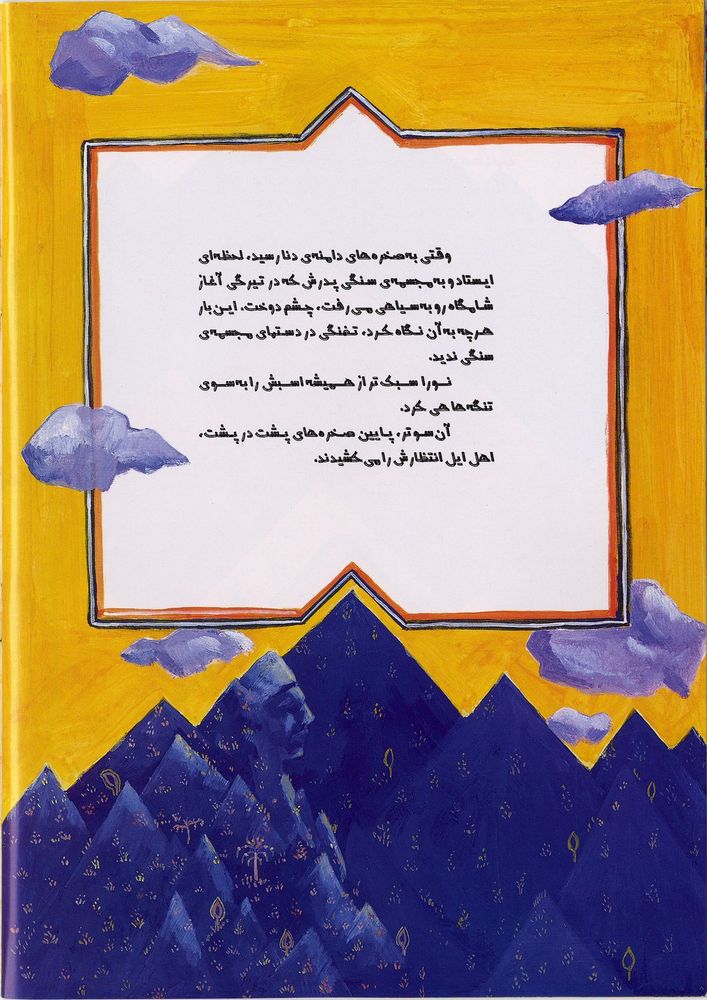 وقتی به صخره‌های دامنه‌ی دنا رسید، لحظه‌ای
ایستاد و به مجسمه‌ی سنگی پدرش که در تیرگی آغاز
شامگاه رو به سیاهی می‌رفت، چشم دوخت. این بار
هرچه به آن نگاه کرد، تفنگی در دستهای مجسمه‌ی
سنگی ندید.
نورا سبک‌تر از همیشه اسبش را به سوی
تنگه‌ها هی کرد.
آن سوتر، پایین صخره‌های پشت در پشت،
اهل ایل انتظارش را می‌کشیدند.